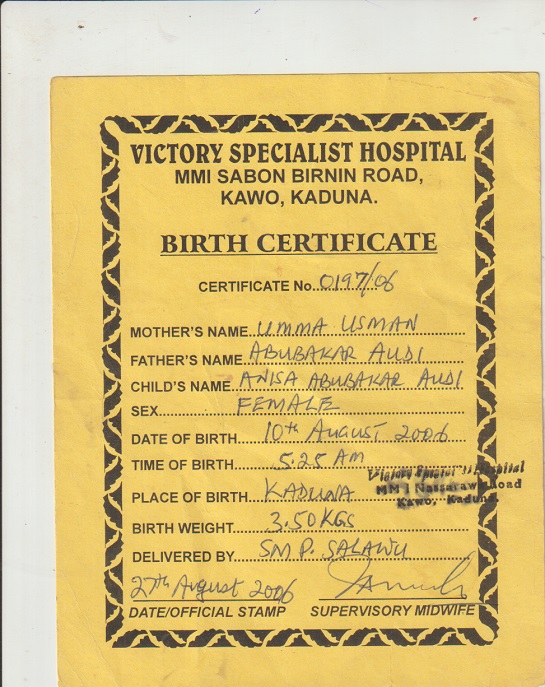 VICTORY SPECIALIST HOSPITAL
MMI SABON BIRNIN ROAD,
KAWO, KADUNA.
BIRTH CERTIFICATE
CERTIFICATE No. 0197/06
MOTHER'S NAME UMMA USMAN
FATHER'S NAME ABUBAKAR AUDI
CHILD'S NAME ANISA ABUBAKAR AUDI
SEX FEMALE
DATE OF BIRTH 10th AUGUST 2006
TIME OF BIRTH 5.25 AM
Victory Specialist Hospital
MM 1 Nassarawa Road
Kawo, Kaduna.
PLACE OF BIRTH KADUNA
BIRTH WEIGHT 3.50KGS
DELIVERED BY SM P. SALAWU
27th August 2006
DATE/OFFICIAL STAMP SUPERVISORY MIDWIFE